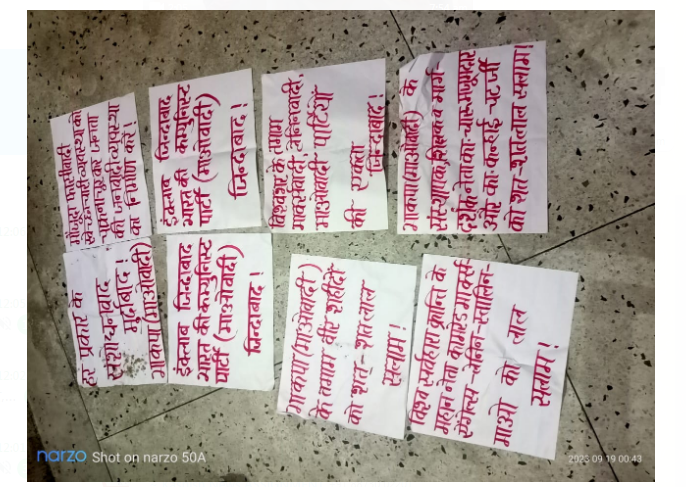 मौजूदा फासीवादी
स्वेच्छाचारी व्यवस्था को
चकनाचूर कर जनता
की जनवादी व्यवस्था
का निर्माण करें!
इंक्लाब जिन्दाबाद
भारत की कम्युनिस्ट
पार्टी (माओवादी)
जिन्दाबाद!
विश्वभर के तमाम
मार्क्सवादी, लेनिनवादी,
माओवादी पार्टियों
की एकता
जिन्दाबाद!
भाकपा (माओवादी) के
संस्थापक, शिक्षक व मार्ग
दर्शक नेता का॰ चारू मजुमदार
और का॰ कन्हाई चटर्जी
को शत्-शत् लाल सलाम!
हर प्रकार के
संशोधनवाद
मुर्दाबाद!
भाकपा (माओवादी)
इंक्लाब जिन्दाबाद
भारत की कम्युनिस्ट
पार्टी (माओवादी)
जिन्दाबाद!
भाकपा (माओवादी)
के तमाम वीर शहीदों
को शत्-शत् लाल
सलाम!
विश्व सर्वहारा क्रान्ति के
महान नेता कामरेड मार्क्स-
एंगेल्स-लेनिन-स्तालिन-
माओ को लाल
सलाम!
narzo Shot on narzo 50A
2023/09/19 00:43